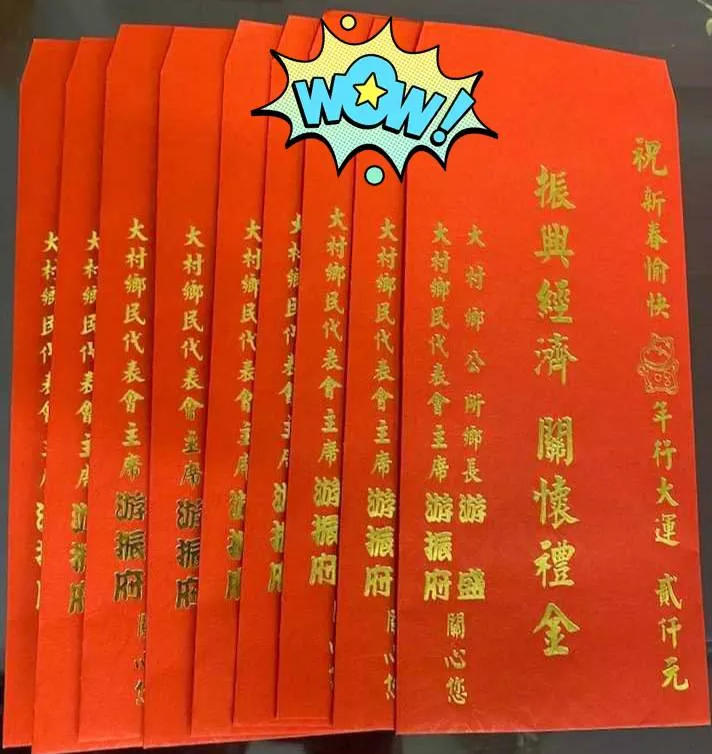 WOW!
祝新春愉快 年行大運 貳仟元
振興經濟 關懷禮金
大村鄉公所鄉長 游盛
大村鄉民代表會主席 游振府
關心您
大村鄉民代表會主席 游振府
大村鄉民代表會主席 游振府
大村鄉民代表會主席 游振府
大村鄉民代表會主席 游振府
大村鄉民代表會主席 游振府
大村鄉民代表會主席 游振府
關心您
大村鄉民代表會主席 游振府
大村鄉民代表會主席 游振府